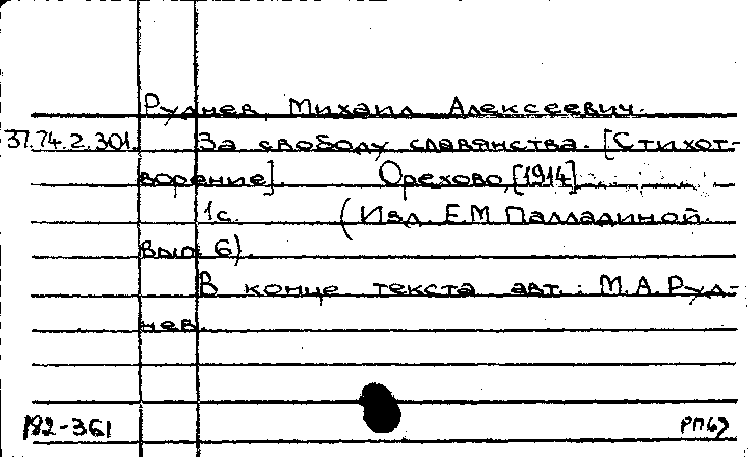 Руднев, Михаил Алексеевич.
37.74.2.301. За свободу славянства. [Стихот-
ворение]. Орехово, [1914]
1с. (Изд. Е.М Палладиной.
Вып. 6).
В конце текста авт.: М.А.Руд-
нев.
192-361 РП69